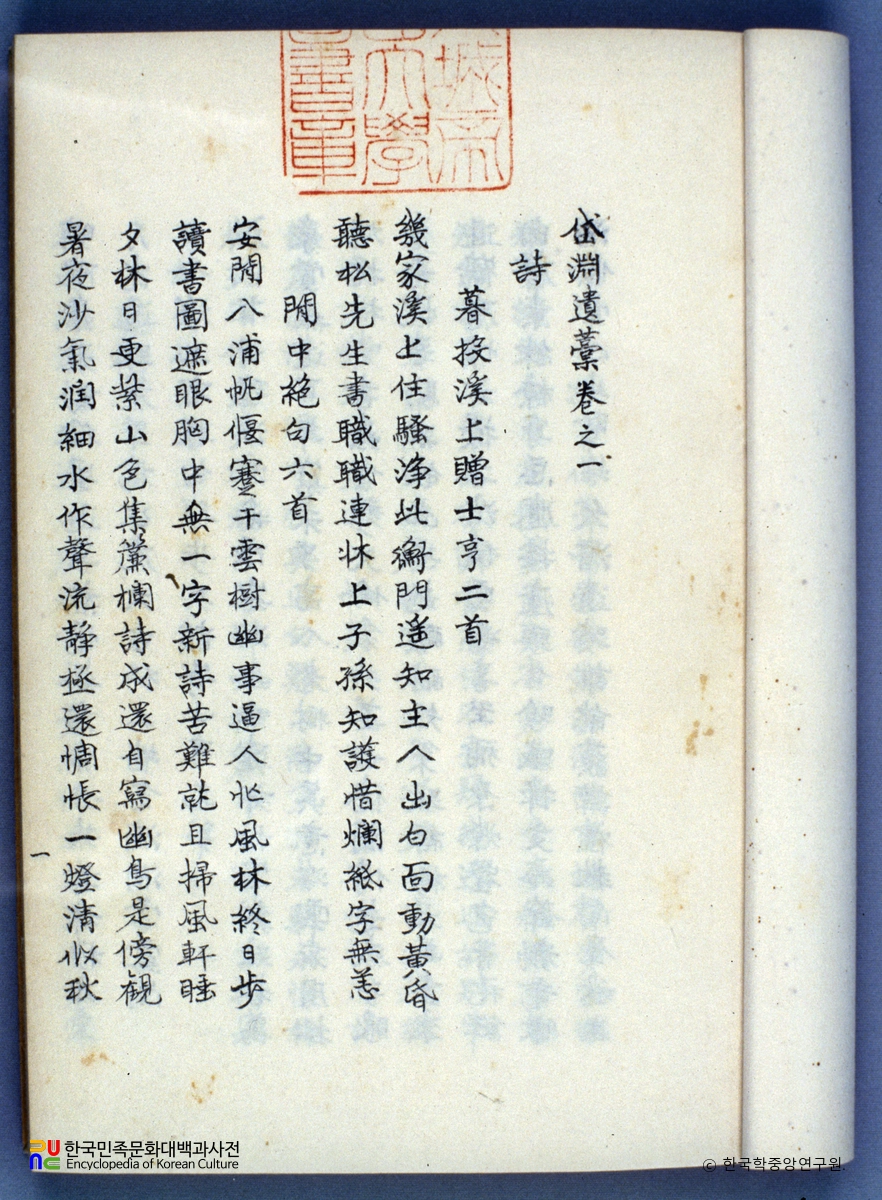 岱淵遺藁卷之一
詩
暮投溪上贈士亨二首
幾家溪上住騷淨此衡門遥知主人出白面動黃昏
聽松先生書職職連牀上子孫知護惜爛紙字無恙
閒中絶句六首
安閒八浦帆偃蹇干雲樹幽事逼人忙風林終日步
讀書圖遮眼胸中無一字新詩苦難就且掃風軒睡
夕林日更紫山色集簷欄詩成還自寫幽鳥是傍觀
暑夜沙氣润細水作聲流靜極還惆悵一燈清似秋
一
한국민족문화대백과사전
Encyclopedia of Korean Culture
© 한국학중앙연구원.